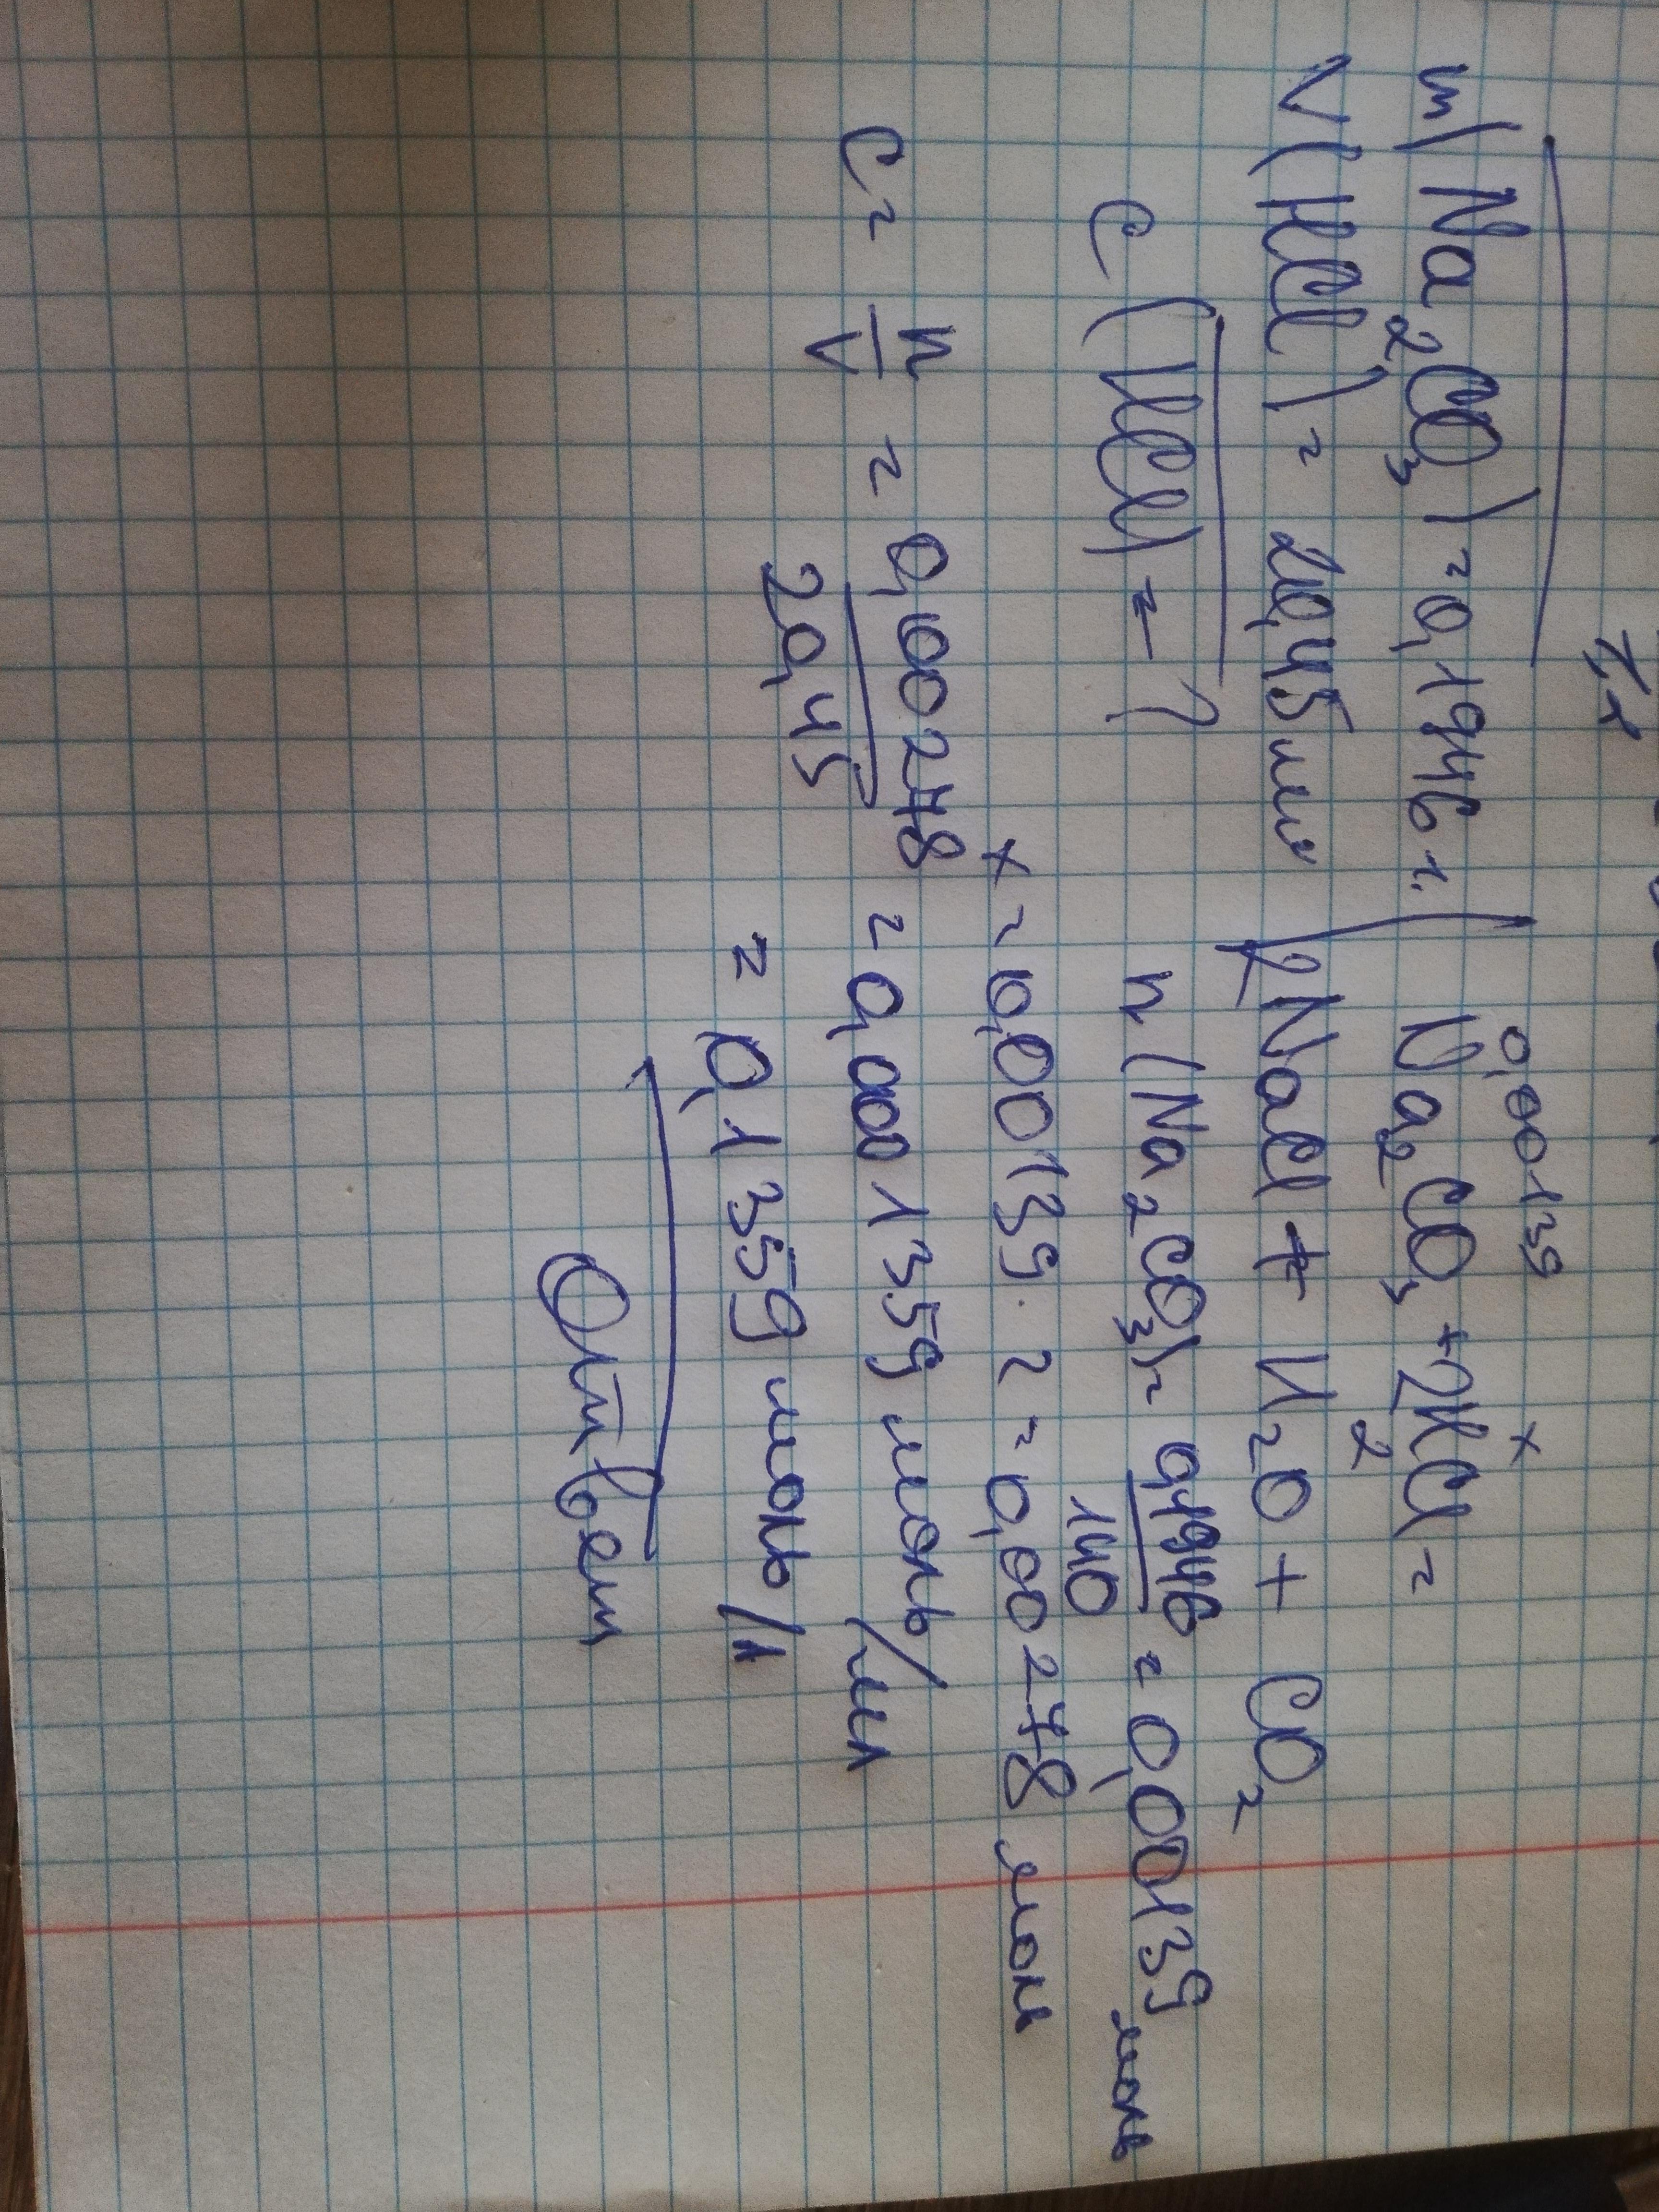 m(Na2CO3) = 0,1946 г.
V(HCl) = 20,45 мл
C(HCl) = ?
0,00139 x
Na2CO3 + 2HCl =
2
2NaCl + H2O + CO2
n(Na2CO3) = 0,1946/140 = 0,00139 моль
x = 0,00139 · 2 = 0,00278 моль
C = n/V = 0,00278/20,45 = 0,0001359 моль/мл
= 0,1359 моль/л
Ответ